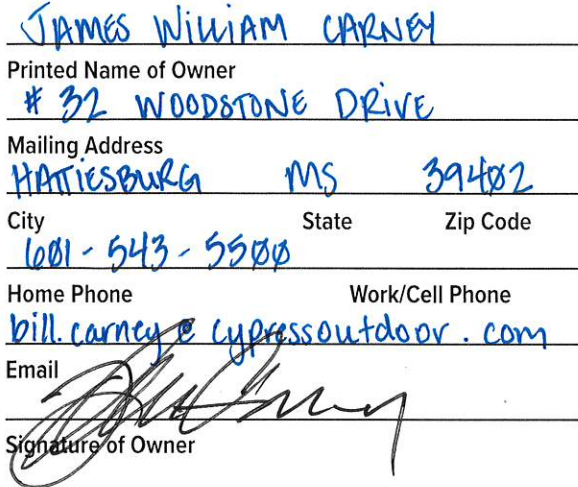 JAMES WILLIAM CARNEY
Printed Name of Owner
# 32 WOODSTONE DRIVE
Mailing Address
HATTIESBURG MS 39402
City State Zip Code
601-543-5500
Home Phone Work/Cell Phone
bill.carney@cypressoutdoor.com
Email
Signature of Owner